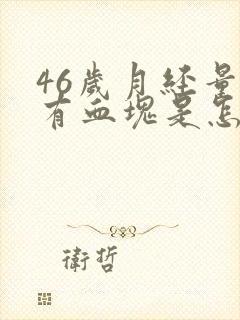 46歲月經量
有血塊是怎
衛哲